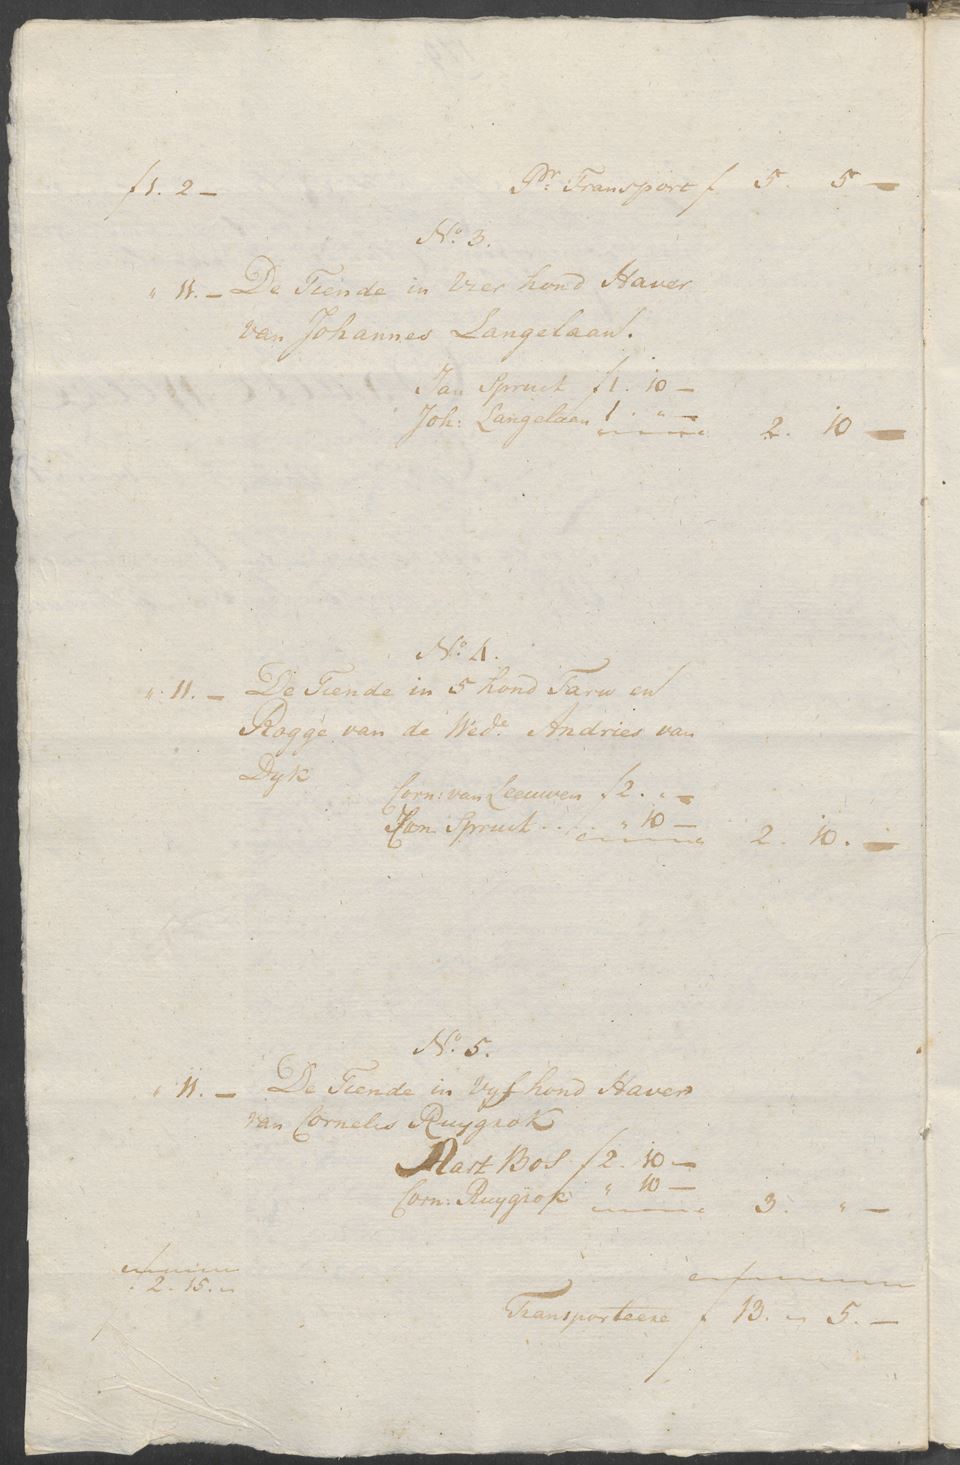 ƒ1. 2 — Pr. Transport ƒ 5. 5 —
No. 3.
" 11. — De Tiende in Vier hond Haver
van Johannes Langelaan.
Jan Spruit ƒ1. 10 —
Joh: Langelaan 1. " — 2. 10 —
No. 4.
" 11. — De Tiende in 5 hond Tarw en
Rogge van de Wede. Andries van
Dyk
Corn: van Leeuwen ƒ2. " —
Jan Spruit . . . " 10 — 2. 10. —
No. 5.
" 11. — De Tiende in Vyf hond Haver
van Cornelis Ruygrok
Mart Bos ƒ2. 10 —
Corn: Ruygrok " 10 — 3. " —
ƒ 2. 15. —
Transporteere ƒ 13. — 5. —